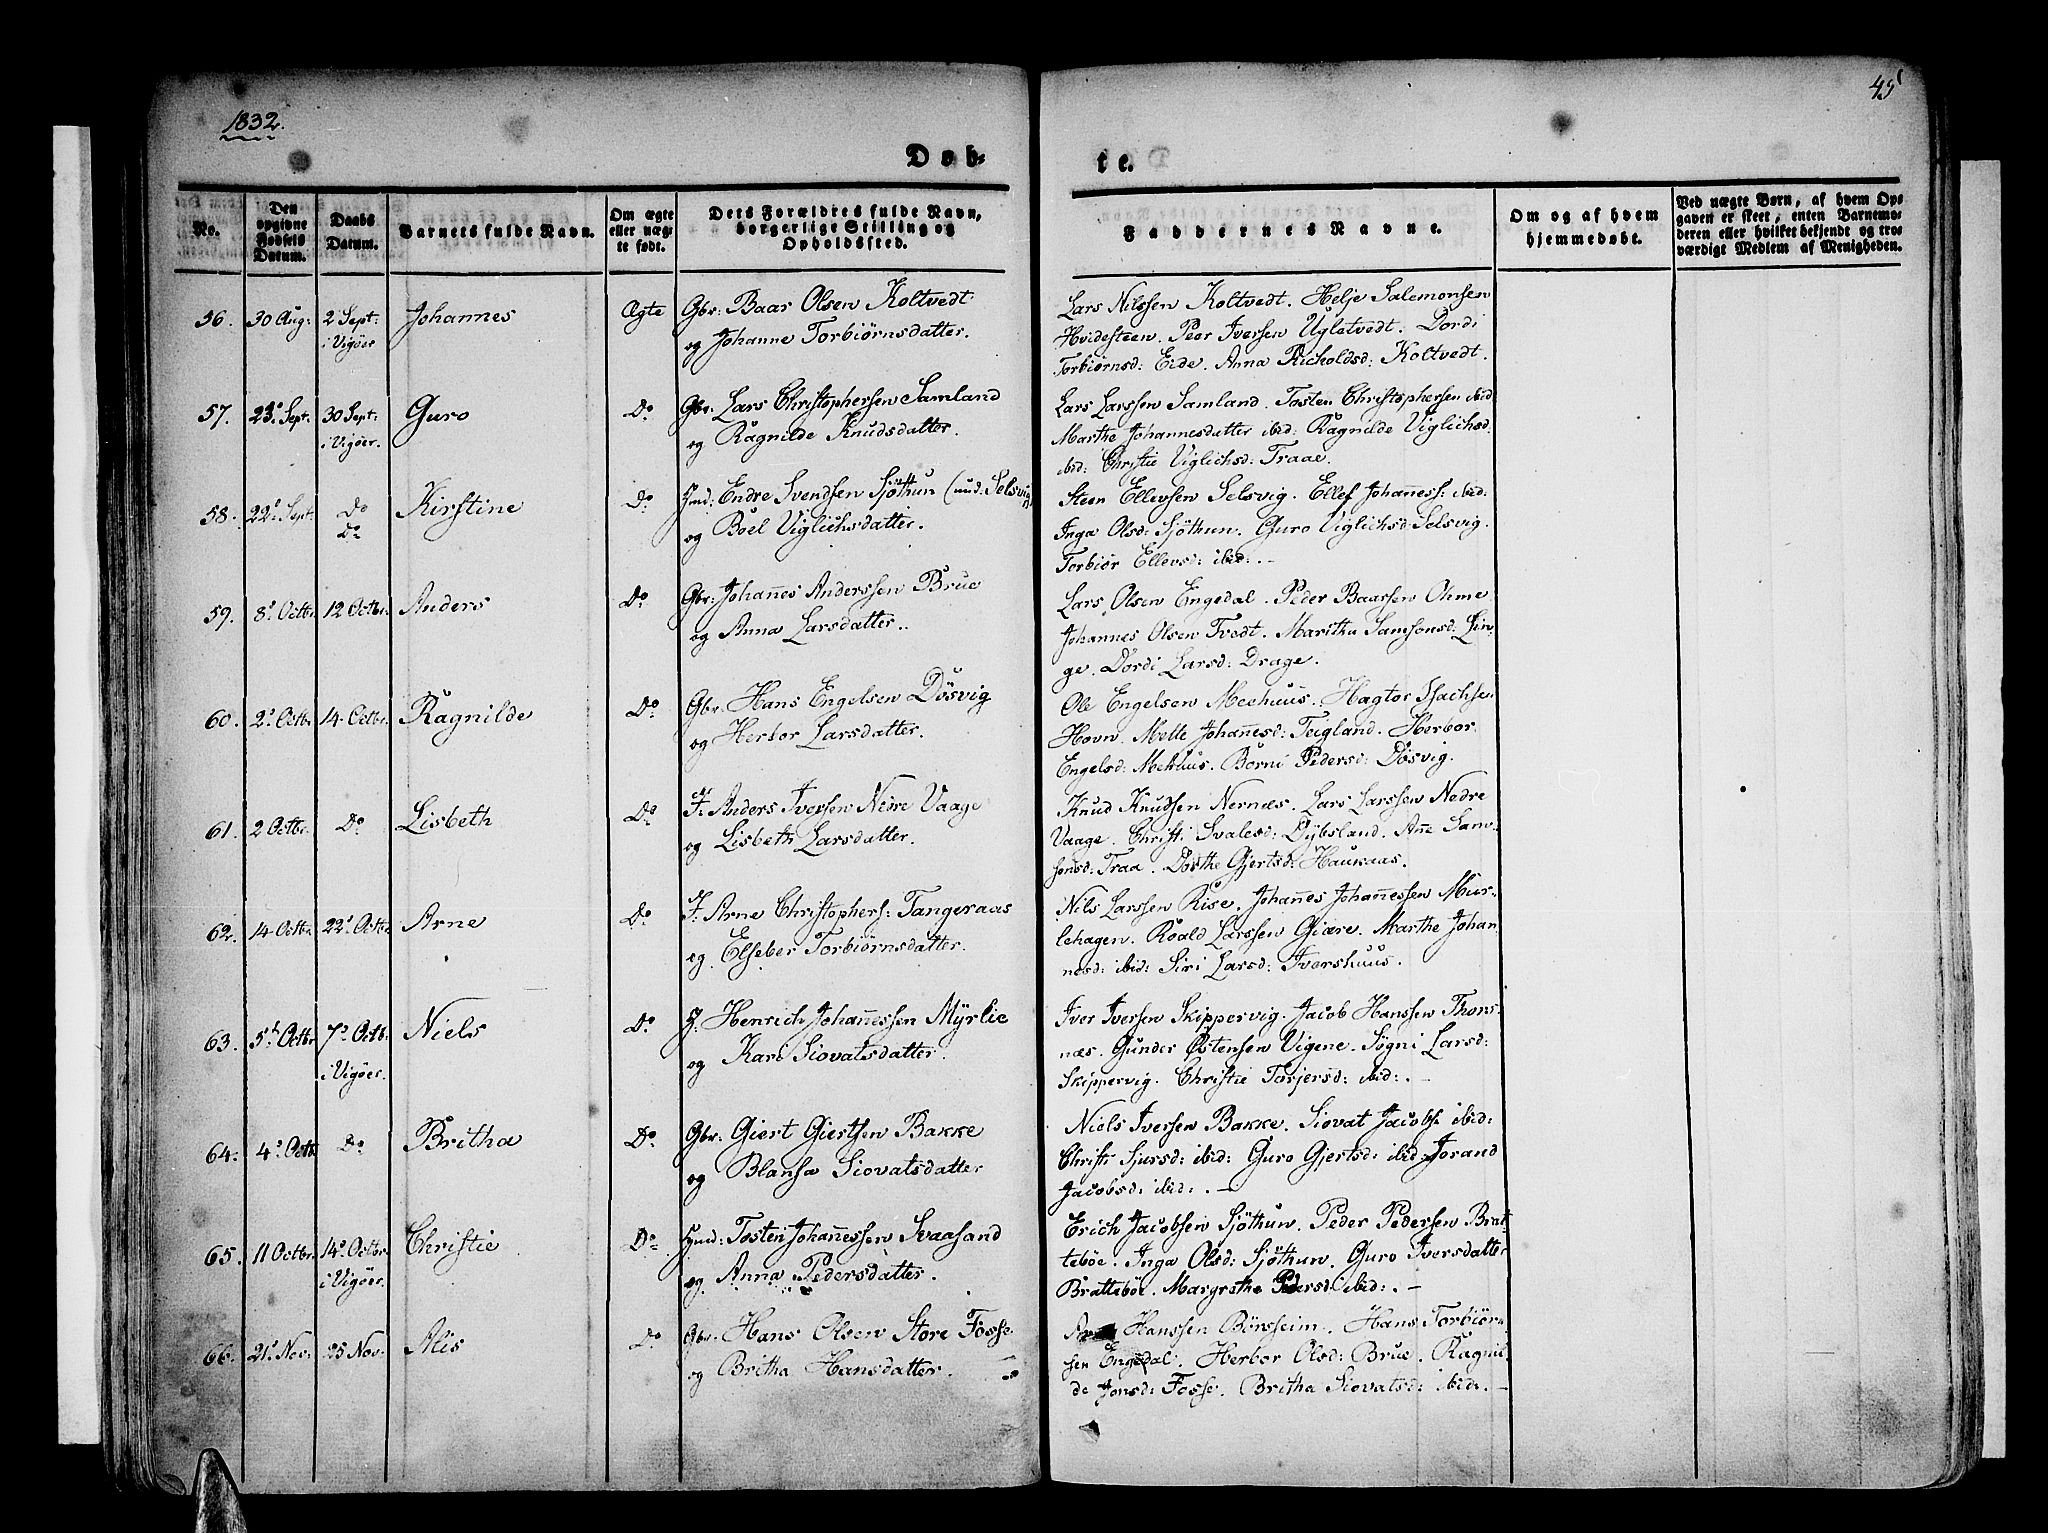 1832.
45
Døb-
te.
No.
Den opgivne Fødsels Datum.
Daabs Datum.
Barnets fulde Navn.
Om ægte eller uægte født.
Dets Forældres fulde Navn, borgerlige Stilling og Opholdsfted.
Faddernes Navne.
Om og af hvem hjemmedøbt.
Ved uægte Børn, af hvem Op-
gaven er skeet, enten Barnemo-
deren eller hvilket bekjendt og tro-
værdigt Medlem af Menigheden.
56. 30 Aug: 2 Sept: i Vigøer Johannes Ægte Gbr: Baar Olsen Koltvedt
og Johanne Torbiørnsdatter.
Lars Nilssen Koltvedt. Helje Salemonsen
Hvidesteen. Peer Iversen Uglatvedt. Dordi
Torbiørnsd: Eide. Anna Richoldsd: Koltvedt.
57. 23de Sept. 30 Sept: i Vigøer. Guro Do Gbr: Lars Christophersen Samland
og Ragnilde Knudsdatter.
Lars Larssen Samland. Tosten Christophersen ibid
Marthe Johannesdatter ibid: Ragnilde Viglichsd.
ibid: Christie Viglichsd: Traae.
58. 22de Sept: Do Do Kirstine Do Ind: Endre Svendsen Sjöthun (nud. Selsvig)
og Boel Viglichsdatter.
Steen Ellevsen Selsvig. Ellef Johaness: ibid:
Inga Olsd: Sjöthun. Guro Viglichsd: Selsvig.
Torbiør Ellevsd: ibid: . -
59. 8de Octbr. 12 Octbr. Anders Do Gbr: Johanes Anderssen Brue
og Anna Larsdatter.
Lars Olsen Engedal. Peder Baarsen Ohme
Johannes Olsen Tvedt. Maritha Samsonsd: Lin-
ge. Dordi Larsd: Drage.
60. 2de Octbr 14 Octbr. Ragnilde Do Gbr. Hans Engelsen Dösvig
og Herbor Larsdatter.
Ole Engelsen Meehuus. Hagtor Isachsen
Hovn. Mette Johanesd: Teigland. Herbor
Engelsd: Mehuus. Borni Pedersd: Dösvig.
61. 2 Octbr. Do Lisbeth Do Anders Iversen Nedre Vaage
og Lisbeth Larsdatter.
Knud Knudsen Nernæs. Lars Larssen Nedre
Vaage. Christi Svalesd: Dybsland. Ane Sam-
sonsd: Traa. Dorthe Gjertsd: Haukaas.
62. 14 Octbr. 22de Octbr. Arne Do Arne Christophers: Tangeraas
og Elseber Torbiörnsdatter.
Nils Larssen Rise. Johanes Johanessen Mur-
lehagen. Roald Larssen Giære. Marthe Johan
nesd: ibid: Siri Larsd: Ivershuus.
63. 5te Octbr 7de Octb: i Vigöer. Niels Do I. Henrich Johanessen Myrlie
og Kari Siovatsdatter.
Iver Iversen Skippervig. Jacob Hanssen Thors-
næs. Gunder Østensen Vigene. Sögni Larsd:
Skippervig. Christie Torjersd: ibid: . -
64. 4de Octb. Do Britha Do Gbr: Giert Giertsen Bakke
og Blansa Siovatsdatter
Niels Iversen Bakke. Siovat Jacobs: ibid:
Christi Sjursd: ibid: Guro Gjertsd: ibid: Jorand
Jacobsd: ibid: . -
65. 11 Octbr. 14de Octbr. i Vigöer. Christie Do Ind: Tosten Johanessen Svaasand
og Anna Pedersdatter.
Erich Jacobsen Sjöthun. Peder Pedersen Brat
teböe. Inga Olsd: Sjöthun. Guro Iversdatter
Bratteböe. Margrethe Pedersd: ibid: . -
66. 21de Nov: 25 Nov. Alis Do Gbr: Hans Olsen Store Fosse
og Britha Hansdatter.
Hanssen Börsheim. Hans Torbiörn
sen Engedal. Herbor Olsd: Brue. Ragnil-
de Jonsd: Fosse. Britha Siovatsd: ibid: . -